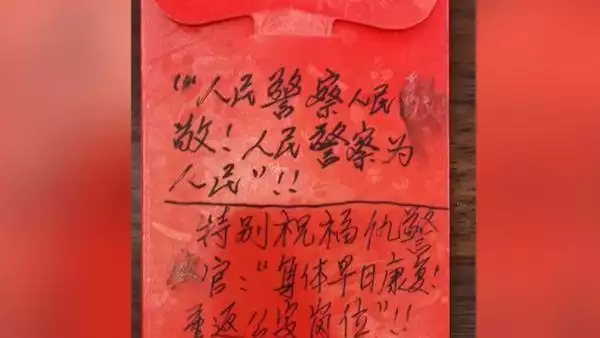 “人民警察人民
敬！人民警察为
人民”！！
特别祝福仇警
官：“身体早日康复！
重返公安岗位”！！